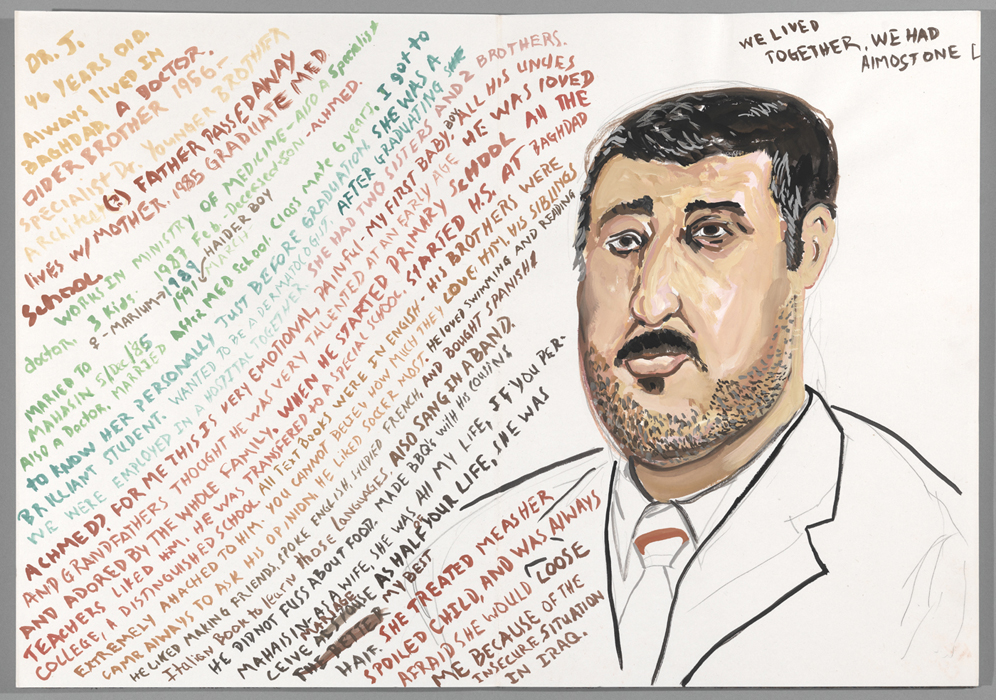 DR. J.
46 YEARS OLD.
ALWAYS LIVED IN
BAGHDAD. A DOCTOR.
OLDER BROTHER 1956-
SPECIALIST Dr. YOUNGER BROTHER
Architect (?) FATHER PASSED AWAY
lives w/ MOTHER. 1985 GRADUATE MED
School.
WORKS IN MINISTRY OF MEDICINE - Also a Specialist
doctor. 3 Kids: 1983 Feb - Deceased son - ACHMED.
♀-MARIUM → 1989 HAIDER BOY
1991 MARCH
MARIED TO
MAHALIN 5/Dec/85
Also a Doctor. MARRIED After MED School. Class made 6 years, I got to
TO KNOW HER PERSONALLY JUST BEFORE GRADUATION. SHE WAS A
BRILLIANT STUDENT. WANTED TO BE A DERMATOLOGIST. AFTER GRADUATING SHE
WE WERE EMPLOYED IN A HOSPITAL TOGETHER. SHE HAD TWO SISTERS AND 2 BROTHERS.
ACHMED? FOR ME THIS IS VERY EMOTIONAL, PAINFUL - MY FIRST BABY BOY. ALL HIS UNCLES
AND GRANDFATHERS THOUGHT HE WAS VERY TALENTED AT AN EARLY AGE HE WAS LOVED
AND ADORED BY THE WHOLE FAMILY. WHEN HE STARTED PRIMARY SCHOOL ALL THE
TEACHERS LIKED HIM. HE WAS TRANSFERED TO A SPECIAL SCHOOL. STARTED H.S. AT BAGHDAD
COLLEGE, A DISTINGUISHED SCHOOL. All TEXT BOOKS WERE IN ENGLISH - HIS BROTHERS WERE
EXTREMELY AHACHED TO HIM. YOU CANNOT HOW MUCH THEY LOVE HIM. HIS SIBLINGS
CAME ALWAYS TO ASK HIS OPINION. HE LIKED SOCCER MOST. HE LOVED SWIMMING AND READING
HE LIKED MAKING FRIENDS, SPOKE ENGLISH, STUDIED FRENCH, AND BOUGHT SPANISH &
Italian Book to learn those languages. ALSO SANG IN A BAND.
HE DID NOT FUSS ABOUT FOOD. MADE BBQ's WITH HIS COUSINS
AS A WIFE, SHE WAS All MY LIFE, IF YOU PER-
CEIVE AS HALF OF YOUR LIFE, SHE WAS
THE BETTER MY BEST
HALF. SHE TREATED ME AS HER
SPOILED CHILD, AND WAS ALWAYS
AFRAID SHE WOULD LOOSE
ME BECAUSE OF THE
INSECURE SITUATION
IN IRAQ.
WE LIVED
TOGETHER. WE HAD
AlMOST ONE